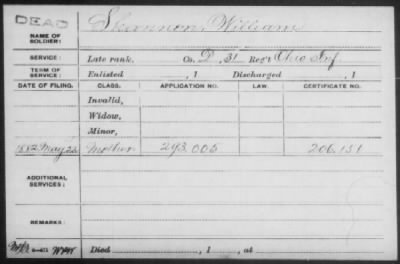 DEAD
NAME OF SOLDIER: Shannon, William
SERVICE: Late rank, Co. D, 31 Reg't Ohio Inf
TERM OF SERVICE: Enlisted , 1 Discharged , 1
DATE OF FILING. CLASS. APPLICATION NO. LAW. CERTIFICATE NO.
Invalid,
Widow,
Minor,
1882 May 22 Mother 293,005 206,131
ADDITIONAL SERVICES:
REMARKS:
Died , 1 , at